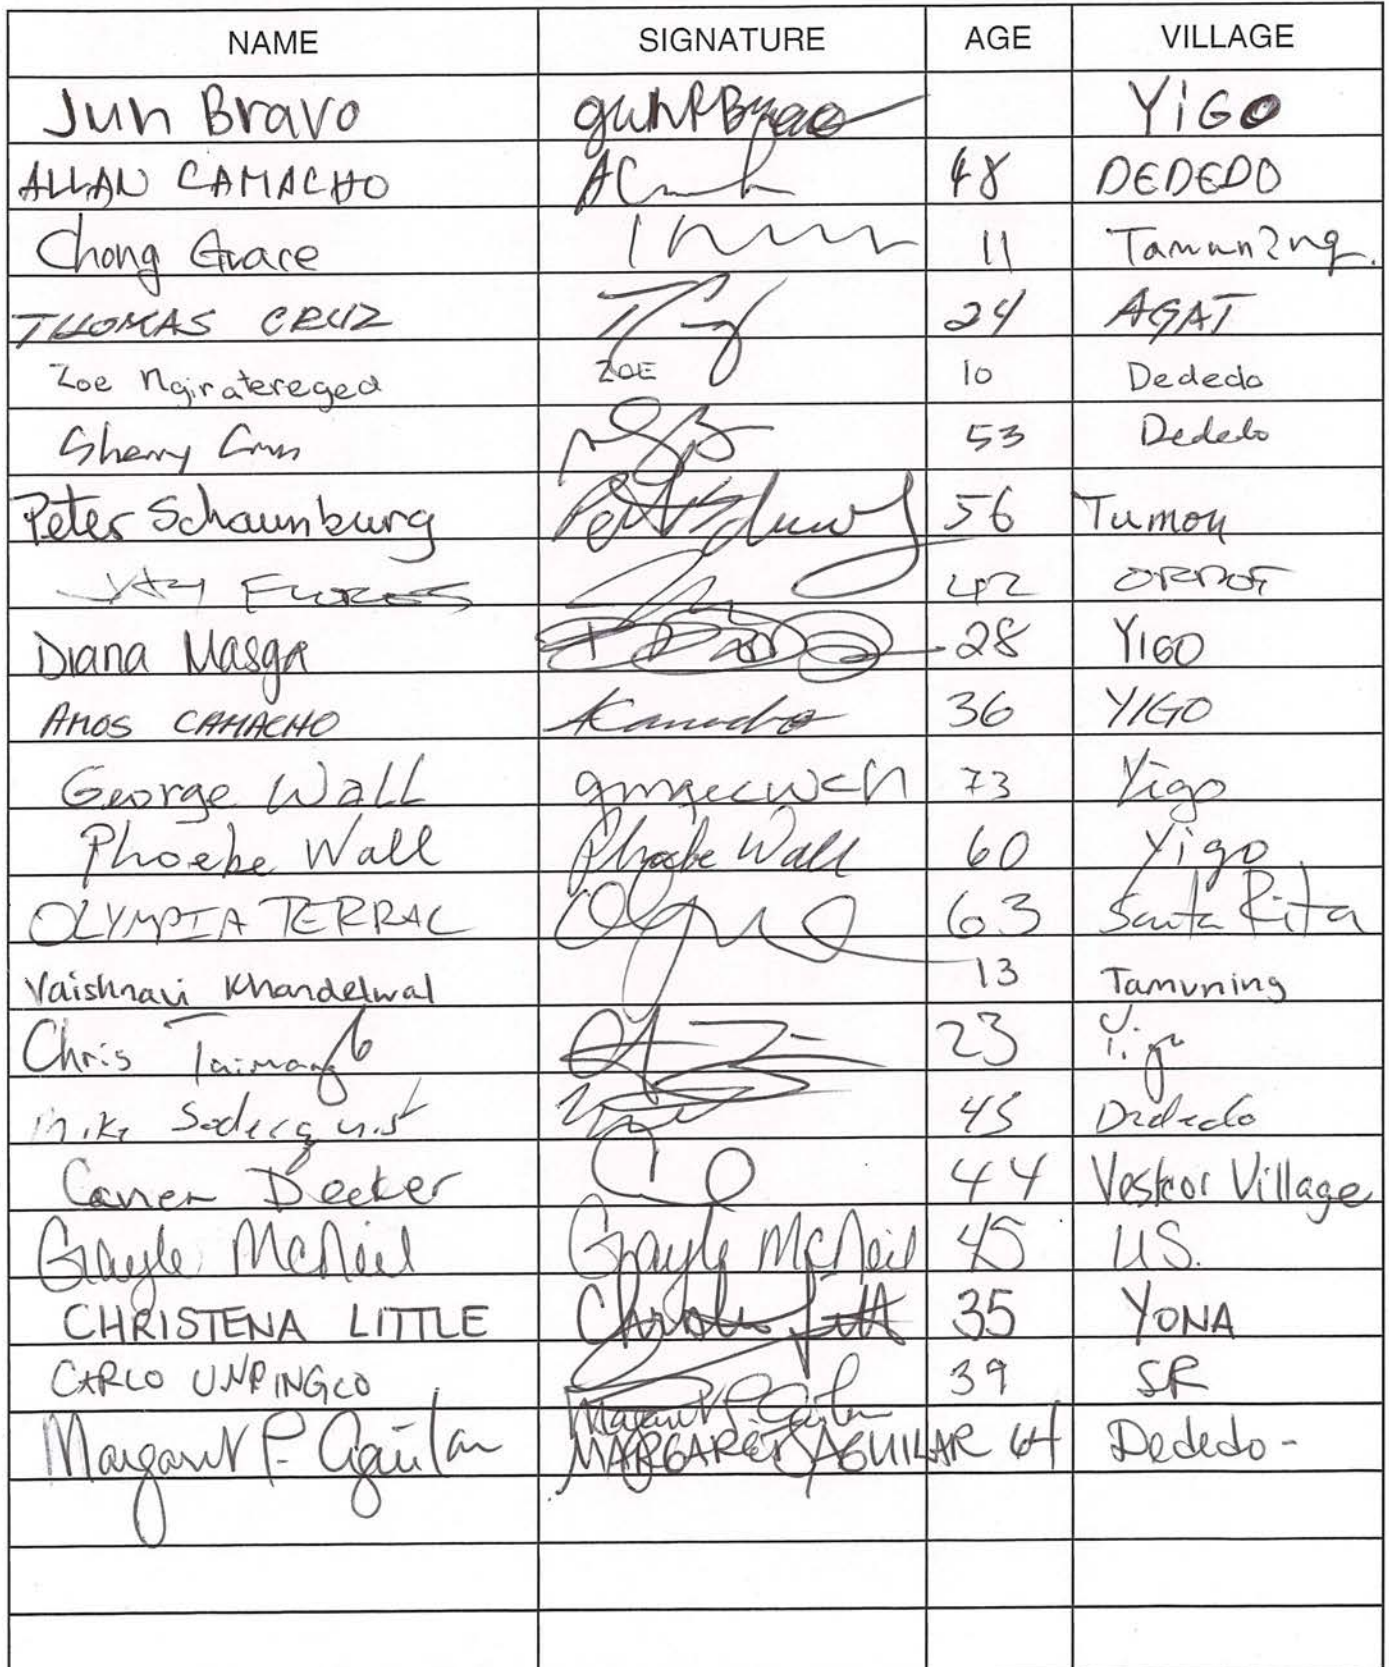 NAME SIGNATURE AGE VILLAGE
Jun Bravo YiGo
ALLAN CAMACHO 48 DEDEDO
Chong Grace 11 Tamuning.
THOMAS CRUZ 24 AGAT
Zoe Ngiratereged ZOE 10 Dededo
Sherry Cruz 53 Dededo
Peter Schaumburg 56 Tumon
JAY FLORES 42 ORDOT
Diana Masga 28 YIGO
AMOS CAMACHO 36 YIGO
George Wall 73 Yigo
Phoebe Wall Phoebe Wall 60 Yigo
OLYMPIA TERRAL 63 Santa Rita
Vaishnavi Khandelwal 13 Tamuning
Chris 23 Yigo
Mike Soderquist 45 Dededo
Decker 44 Village
Gayle McNeil Gayle McNeil 45 U.S.
CHRISTENA LITTLE 35 YONA
CARLO UNPINGCO 39 SR
Margaret P. Aguilar Margaret P. Aguilar
MARGARET AGUILAR 64 Dededo -